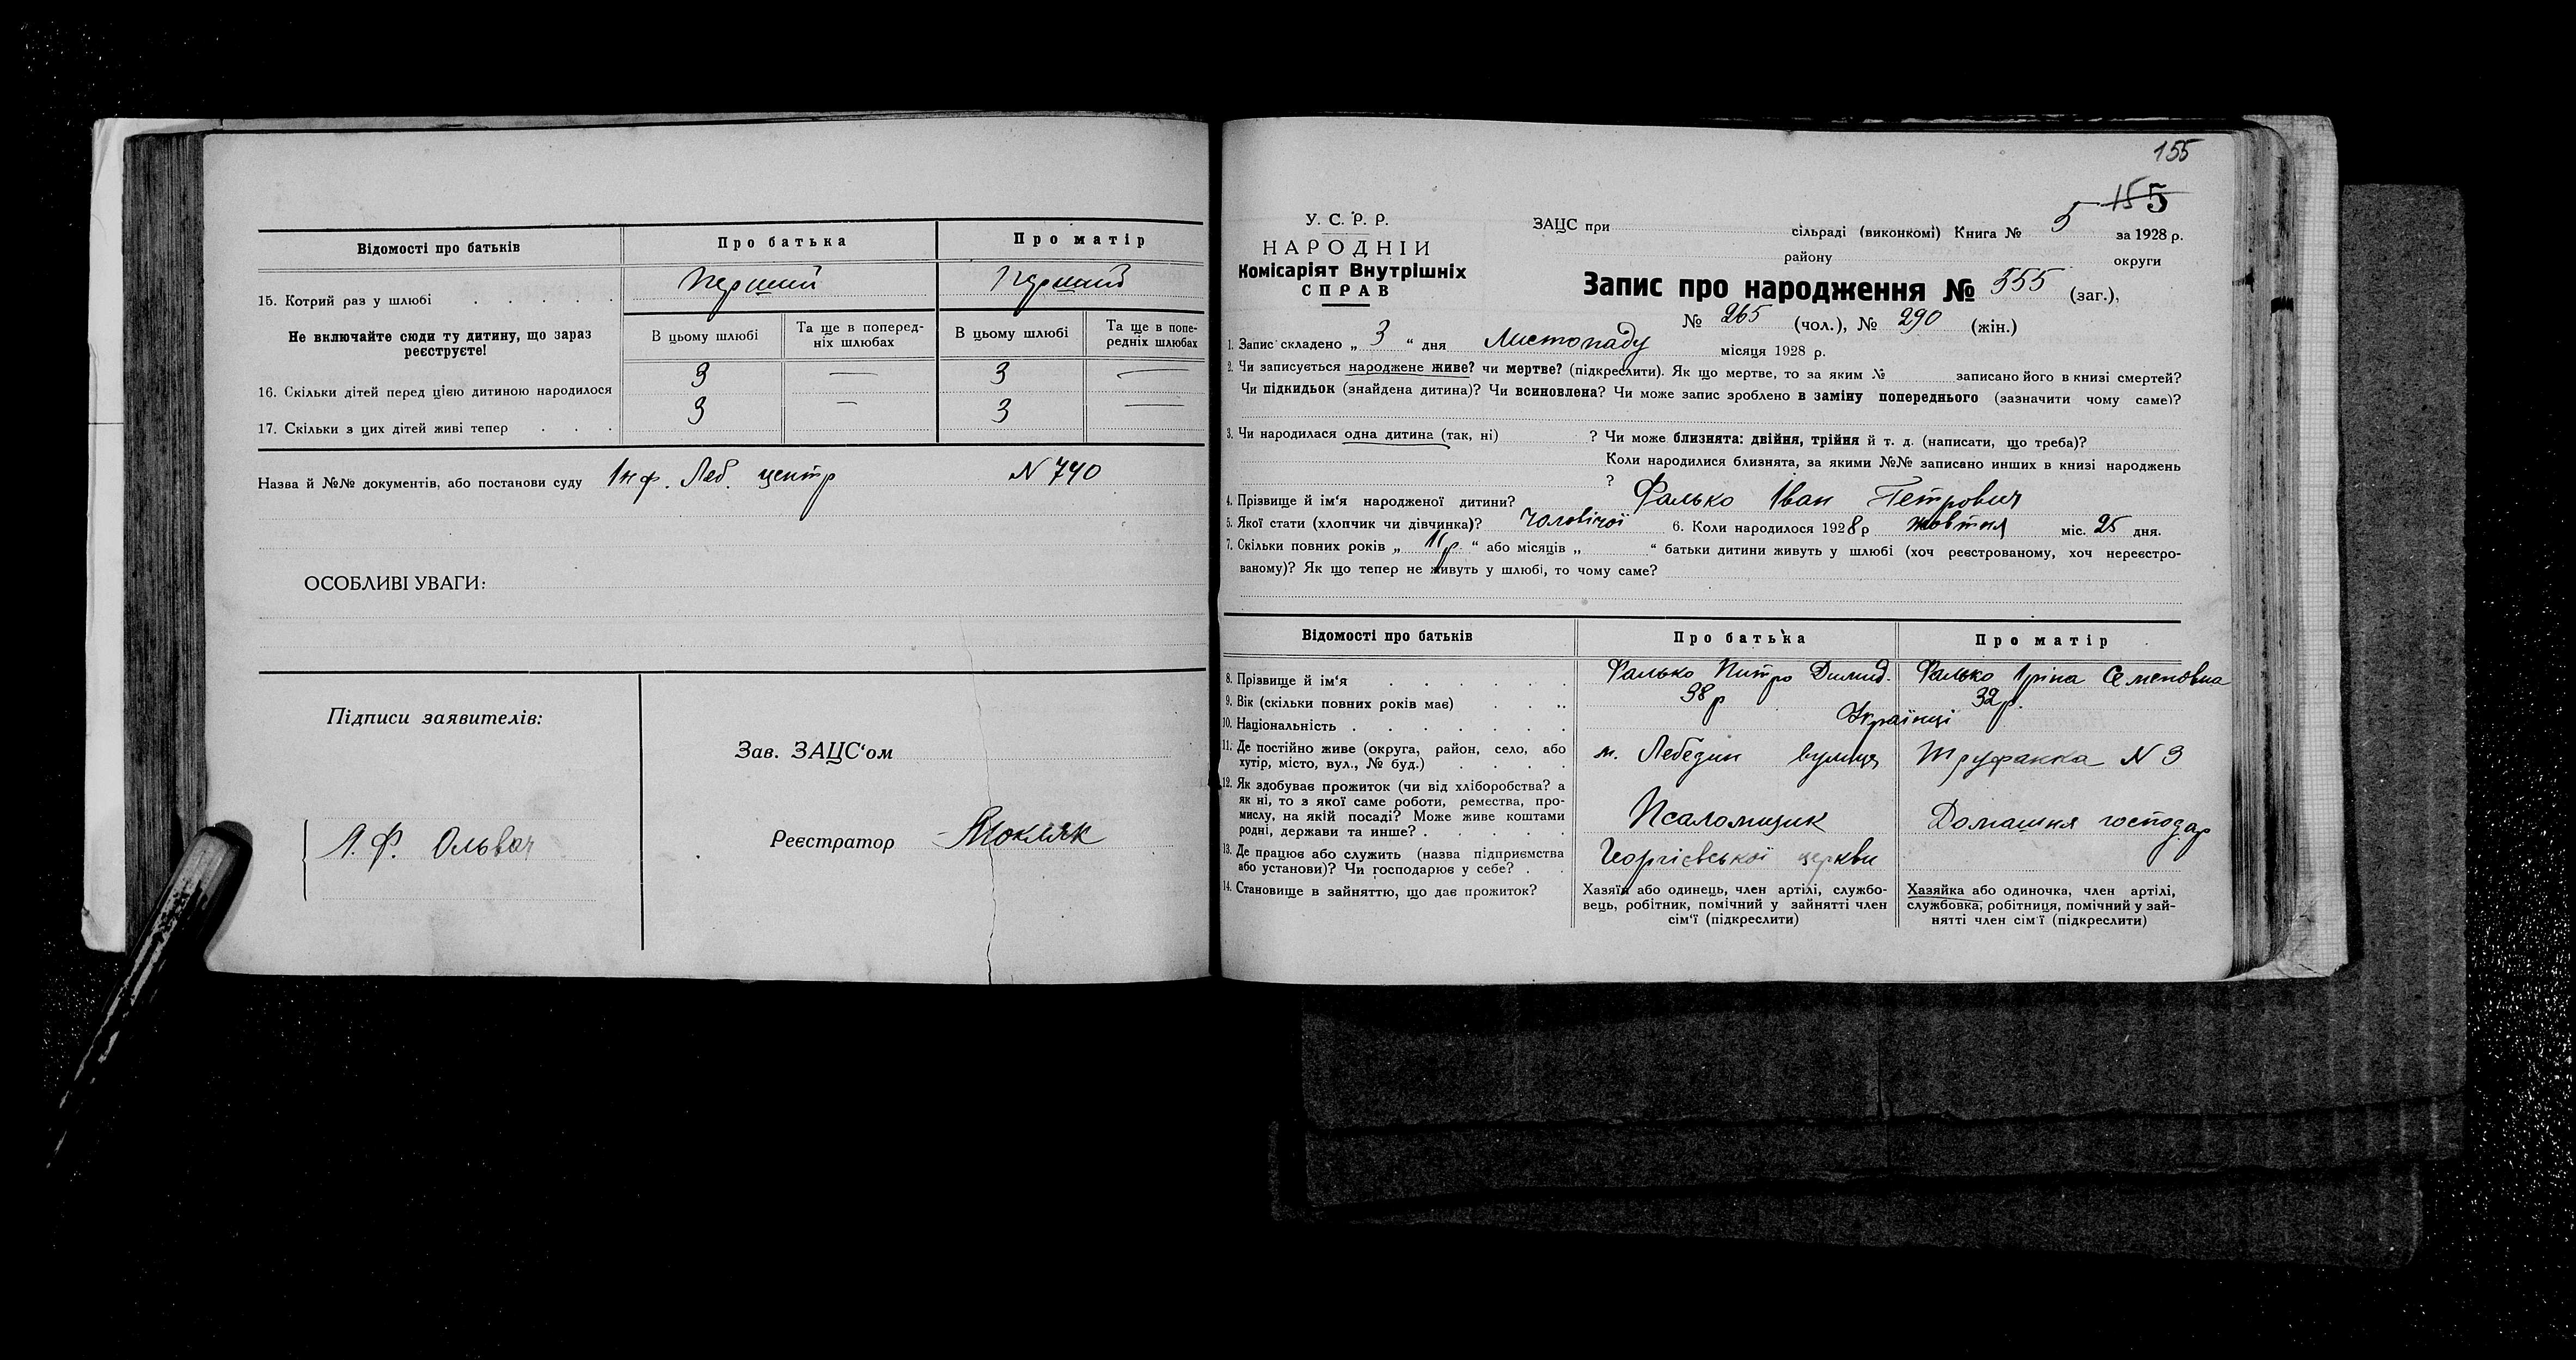 Відомості про батьків
Про батька
Про матір
15. Котрий раз у шлюбі
Перший
Перший
Не включайте сюди ту дитину, що зараз реєструєте!
В цьому шлюбі
Та ще в попередніх шлюбах
В цьому шлюбі
Та ще в попередніх шлюбах
16. Скільки дітей перед цією дитиною народилося
3 — 3 —
17. Скільки з цих дітей живі тепер
3 — 3 —
Назва й №№ документів, або постанови суду Інф. Леб. центр N 740
ОСОБЛИВІ УВАГИ:
Підписи заявителів:
Зав. ЗАЦС‘ом
Реєстратор
155
155
У. С. Р. Р.
НАРОДНІЙ
Комісаріят Внутрішніх
СПРАВ
ЗАЦС при сільраді (виконкомі) Книга № 5 за 1928 р.
району округи
Запис про народження № 555 (заг.),
№ 265 (чол.), № 290 (жін.)
1. Запис складено „ 3 “ дня Листопаду місяця 1928 р.
2. Чи записується народжене живе? чи мертве? (підкреслити). Як що мертве, то за яким № записано його в книзі смертей?
Чи підкидьок (знайдена дитина)? Чи всиновлена? Чи може запис зроблено в заміну попереднього (зазначити чому саме)?
3. Чи народилася одна дитина (так, ні) ? Чи може близнята: двійня, трійня й т. д. (написати, що треба)?
Коли народилися близнята, за якими №№ записано инших в книзі народжень
?
4. Прізвище й ім‘я народженої дитини? Фалько Іван Петрович
5. Якої стати (хлопчик чи дівчинка)? чоловічої 6. Коли народилося 1928 р жовтня міс. 25 дня.
7. Скільки повних років „ 11 р. “ або місяців „ “ батьки дитини живуть у шлюбі (хоч реєстрованому, хоч нереєстро-
ваному)? Як що тепер не живуть у шлюбі, то чому саме?
Відомості про батьків
Про батька
Про матір
8. Прізвище й ім‘я
Фалько Питро
Фалько Іріна Семеновна
9. Вік (скільки повних років має)
38 р
32 р.
10. Національність
Українці
11. Де постійно живе (округа, район, село, або
хутір, місто, вул., № буд.)
м. Лебедин вулиця Труфанка N 3
12. Як здобуває прожиток (чи від хліборобства? а
як ні, то з якої саме роботи, ремества, про-
мислу, на якій посаді? Може живе коштами
родні, держави та инше?
Псаломщик
Домашня господар
13. Де працює або служить (назва підприємства
або установи)? Чи господарює у себе?
Георгієвської церкви
14. Становище в зайняттю, що дає прожиток?
Хазяїн або одинець, член артілі, службо-
вець, робітник, помічний у зайнятті член
сім‘ї (підкреслити)
Хазяйка або одиночка, член артілі,
службовка, робітниця, помічний у зай-
нятті член сім‘ї (підкреслити)